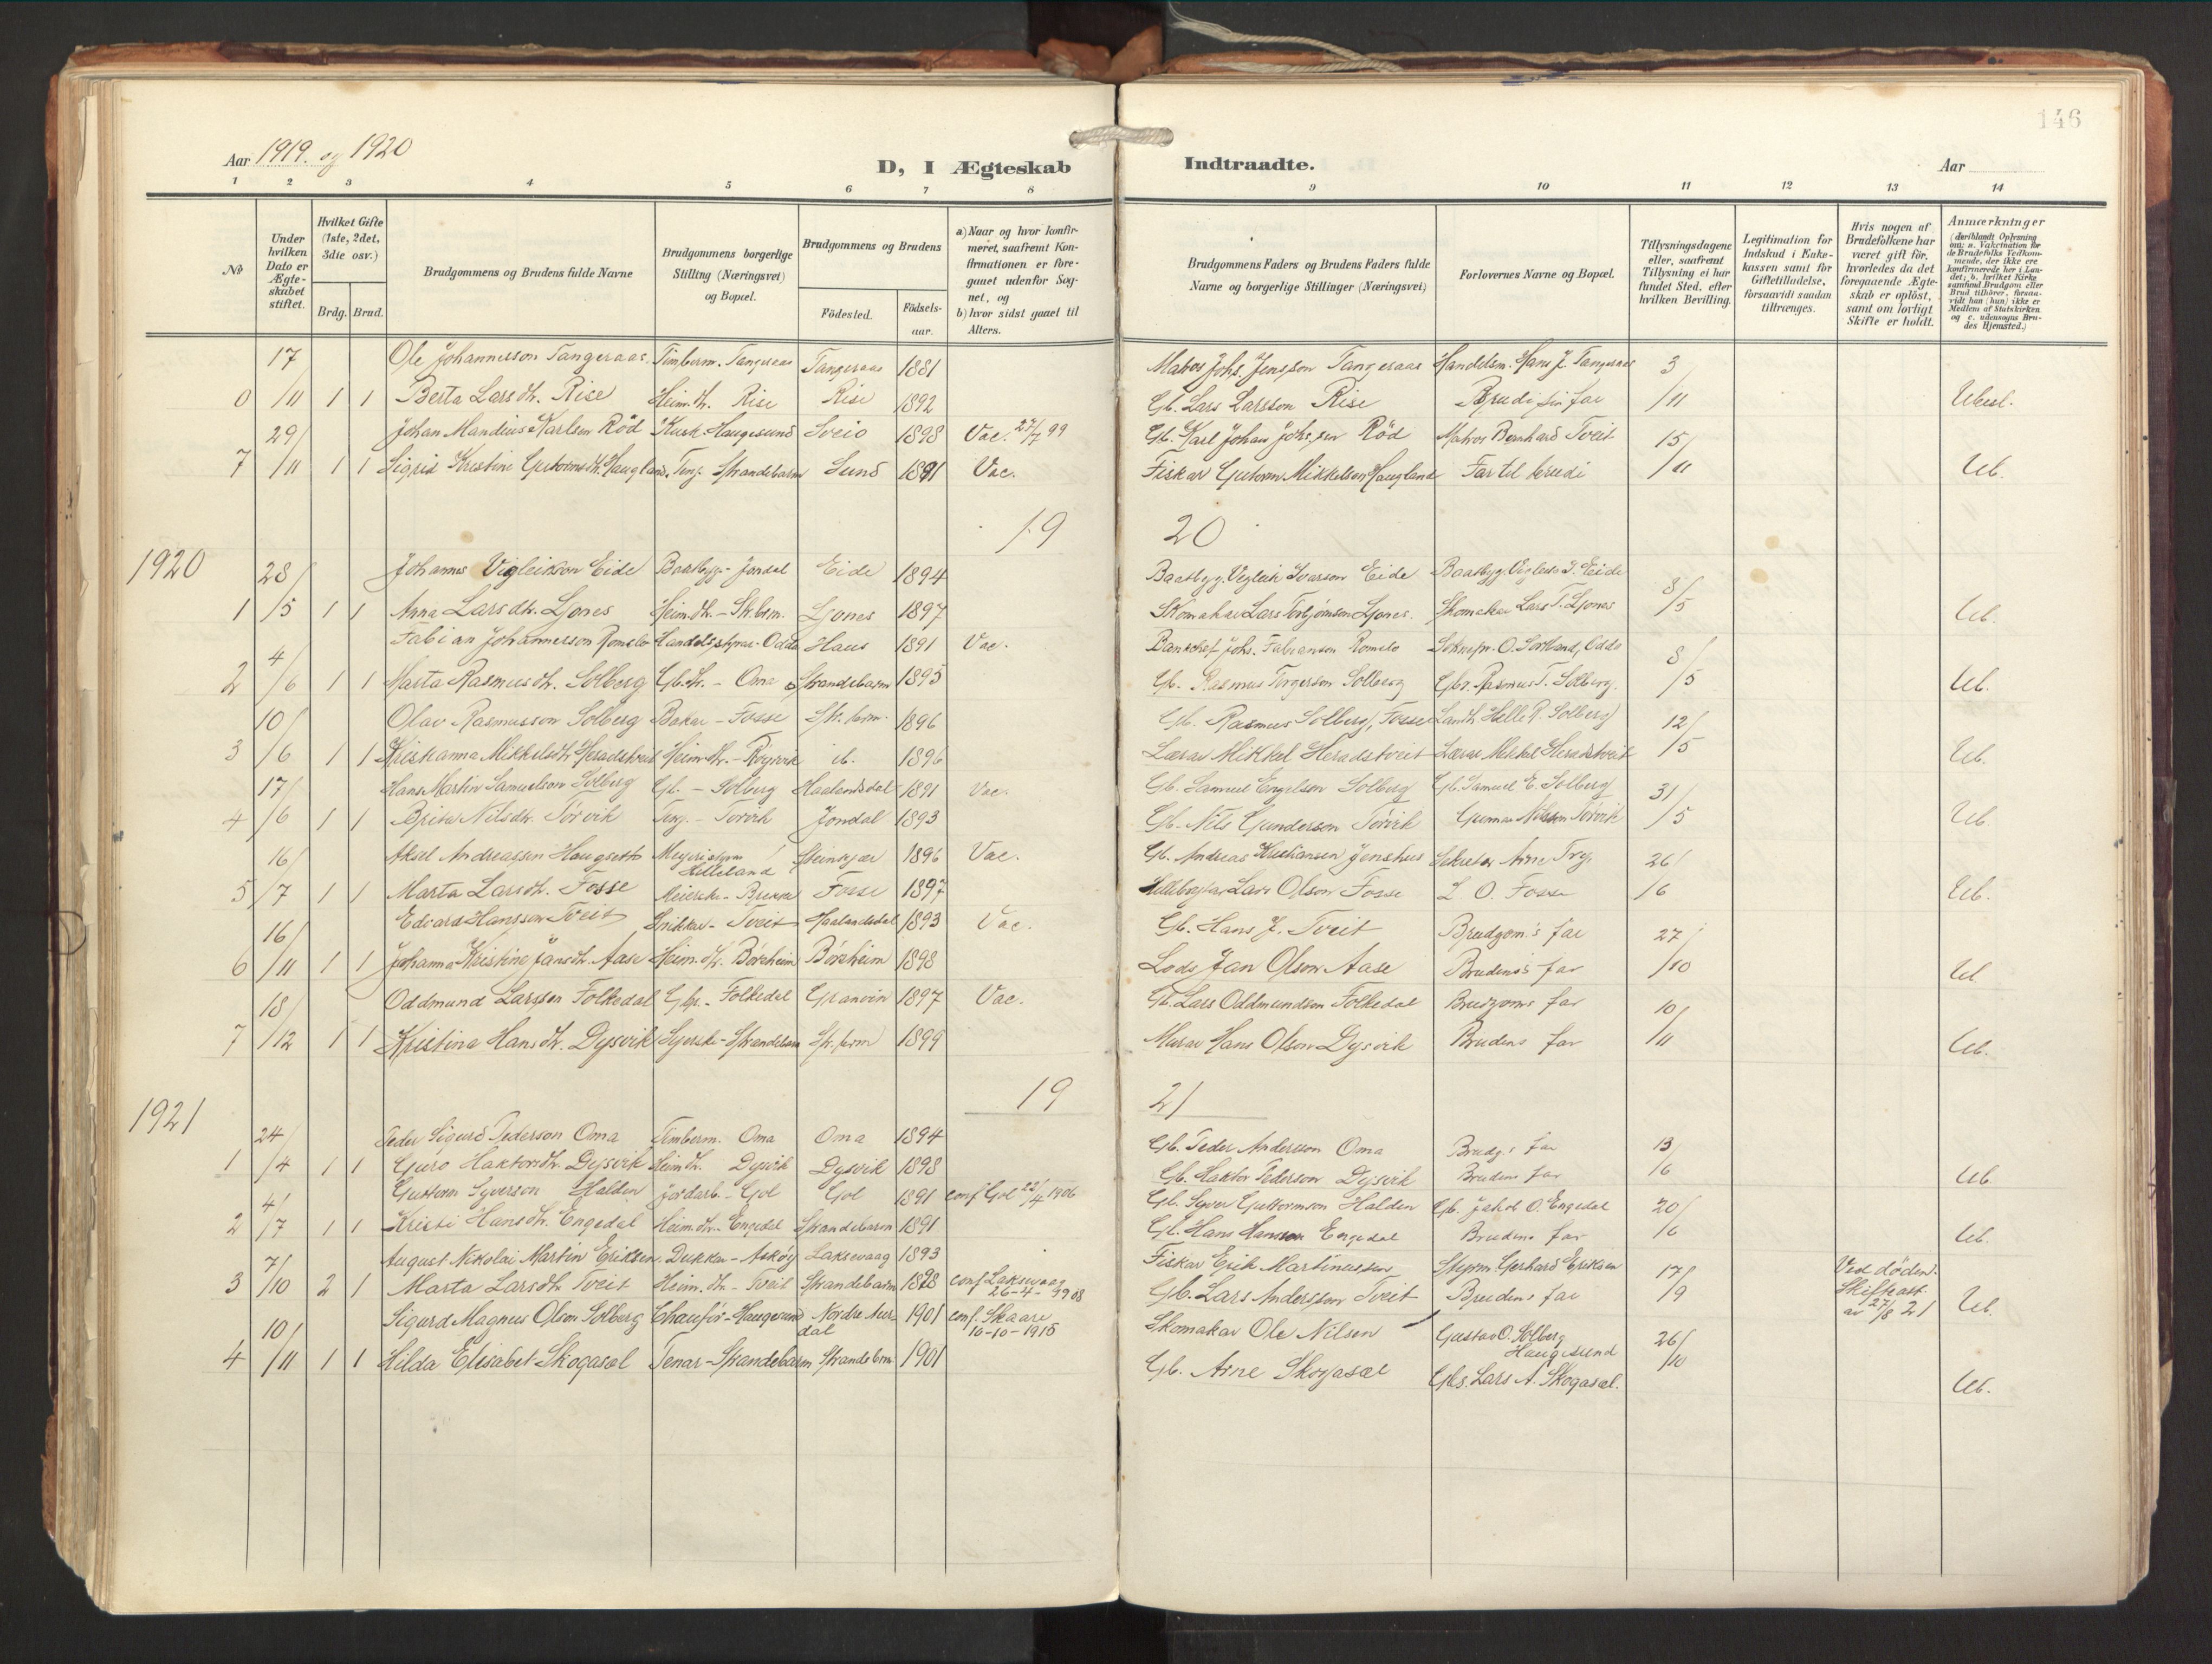 146
Aar 1919. og 1920
D, I Ægteskab
Indtraadte.
Aar
1 2 3 4 5 6 7 8 9 10 11 12 13 14
No
Under hvilken Dato er Ægteskabet stiftet.
Hvilket Gifte (1ste, 2det, 3die osv.)
Brdg. Brud.
Brudgommens og Brudens fulde Navne
Brudgommens borgerlige Stilling (Næringsvei) og Bopæl.
Brudgommens og Brudens
Födested.
Födsels-aar.
a) Naar og hvor konfirmeret, saafremt Konfirmationen er foregaaet udenfor Sognet, og
b) hvor sidst gaaet til Alters.
Brudgommens Faders og Brudens Faders fulde Navne og borgerlige Stillinger (Næringsvei)
Forlovernes Navne og Bopæl.
Tillysningsdagene eller, saafremt Tillysning ei har fundet Sted, efter hvilken Bevilling.
Legitimation for Indskud i Enkekassen samt for Giftetilladelse, forsaavidt saadan tiltrænges.
Hvis nogen af Brudefolkene har været gift för, hvorledes da det foregaaende Ægteskab er oplöst, samt om lovligt Skifte er holdt.
Anmærkninger
17 Ole Johannesson Tangeraas Timberm. Tangeraas Tangeraas 1881 Matros Johs. Jensson Tangeraas Handelsm. Hans J. Tangeraas 3
0 /11 1 1 Berta Larsdtr. Rise Heim.dtr. Rise Rise 1892 Gb. Lars Larsson Rise Brudi sin far /11
29/ Johan Mandius Karlsen Röd Kusk. Haugesund Sveio 1898 Vac. 27/7 99 Gb. Karl Johan Johs.sen Röd Matros Bernhard Tveit 15/
7 /11 1 1 Sigrid Kristine Gutormsdtr. Haugland Ten. Strandebarm Sund 1891 Vac. Fiskar Gutorm Mikkelson Haugland Far til brudi /11 Ub.
19 20
1920 28/ Johannes Vigleikson Eide Baatbygg. - Jondal Eide 1894 Baatbyg. Vigleik Ivarson Eide Baatbyg. Vigleik I. Eide 8/
1 /5 1 1 Anna Larsdtr. Ljones Heim.dtr. - Sk.brm. Ljones 1897 Skomakar Lars Torbjørnson Ljones. Skomakar Lars T. Ljones /5 Ub.
4 Fabian Johannesson Romslo Handelsstyrar - Odda Haus 1891 Vac. Bankchef Johs. Fabianson Romslo Soknepr. O. Sortland, Odda 8/
2 /6 1 1 Marta Rasmusdtr. Solberg Gb.dtr. - Oma Strandebarm 1895 Gb. Rasmus Torgerson Solberg Gbr. Rasmus T. Solberg. /5 Ub.
10/ Olav Rasmusson Solberg Bakar - Fosse Str.barm. 1896 Gb. Rasmus Solberg, Fosse Landh. Helle R. Solberg 12/
3 /6 1 1 Kristianna Mikkelsdtr. Heradstveit Heim.dtr. - Røyrvik ib. 1896 Lærar Mikkel Heradstveit Lærar Mikkel Heradstveit /5 Ub.
17/ Hans Martin Samuelson Solberg Gb. - Solberg Haalandsdal 1891 Vac. Gb. Samuel Engelson Solberg Gb. Samuel E. Solberg 31/
4 /6 1 1 Brita Nilsdtr. Tørvik Ten. - Torvik Jondal 1893 Gb. Nils Gunderson Tørvik Gunnar Nilsson Tørvik /5 Ub
16/ Aksel Andreassen Haugsett Meieristyrar Helleland Steinkjær 1896 Vac. Gb. Andreas Kristiansen Jenshus Sekretær Arne Try. 26/
5 /7 1 1 Marta Larsdtr. Fosse Meierske - Brekke Fosse 1897 Lars Olson Fosse L. O. Fosse /6 Ub.
16/ Edvard Hansson Tveit Snikkar - Tveit Haalandsdal 1893 Vac. Gb. Hans J. Tveit Brudgom's far 27/
6 /11 1 1 Johanna Kristine Jansdtr. Aase Heim.dtr. Børsheim Børsheim 1898 Lods Jan Olson Aase Brudens far /10 Ub
18/ Oddmund Larssen Folkedal Gbr. - Folkedal Granvin 1897 Vac. Gb. Lars Oddmundson Folkedal Brudgoms far 10/
7 /12 1 1 Kristina Hansdtr. Dysvik Syerske - Strandebarm Str.barm 1899 Murar Hans Olson Dysvik Brudens far /11 Ub.
19 21
1921 24/ Peder Sigurd Pederson Oma Timberm. Oma Oma 1894 Gb. Peder Andersson Oma Brudg.s far 13/
1 /4 1 1 Guro Haktorsdtr. Dysvik Heimdtr. Dysvik Dysvik 1898 Gb. Haktor Pederson Dysvik Brudens far /6 Ub
4/ Guttorm Syverson Halden Jordarb. - Gol Gol 1891 conf. Gol 22/4 1906 Gb. Syver Guttormson Halden Gb. Jakob O. Engedal 20/
2 /7 1 1 Kristi Hansdtr. Engedal Heim.dtr. - Engedal Strandebarm 1891 Gb. Hans Hansson Engedal Brudens far /6 Ub.
7/ August Nikolai Martin Eriksen Dukkar - Askøy Laksevaag 1893 conf. Laksevaag 26-4-1908 Fiskar Erik Martinussen Styrm. Gerhard Eriksen 17/ Ved døden.
3 /10 2 1 Marta Larsdtr. Tveit Heim.dtr. - Tveit Strandebarm 1898 Gb. Lars Andersson Tveit Brudens far /9 Skifteatt av 27/8 21 Ub.
10/ Sigurd Magnus Olson Solberg Chaufør - Haugesund Nordre Aurdal 1901 conf. Skaare 10-10-1915 Skomakar Ole Nilsen Gustav O. Solberg Haugesund 26/
4 /11 1 1 Hilda Elisabet Skogasel Tenar - Strandebarm Strandebrm 1901 Gb. Arne Skogasæl Gbs. Lars A. Skogasæl. /10 Ub.